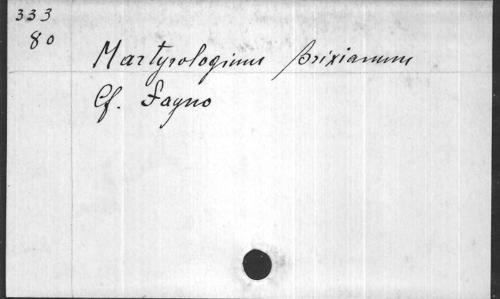 333
80
Martyrologium Brixianum
Cf. Fayno